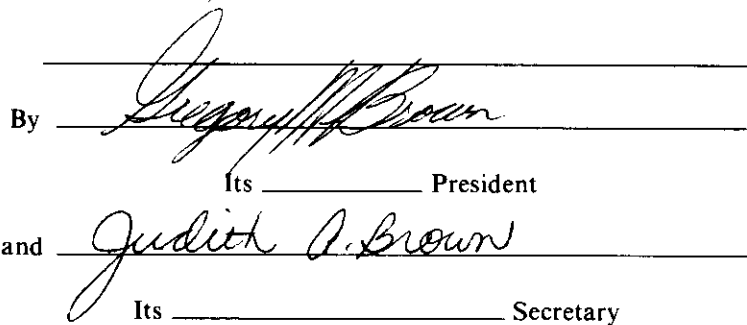 By Gregory M. Brown
Its ________ President
and Judith A. Brown
Its ________________ Secretary